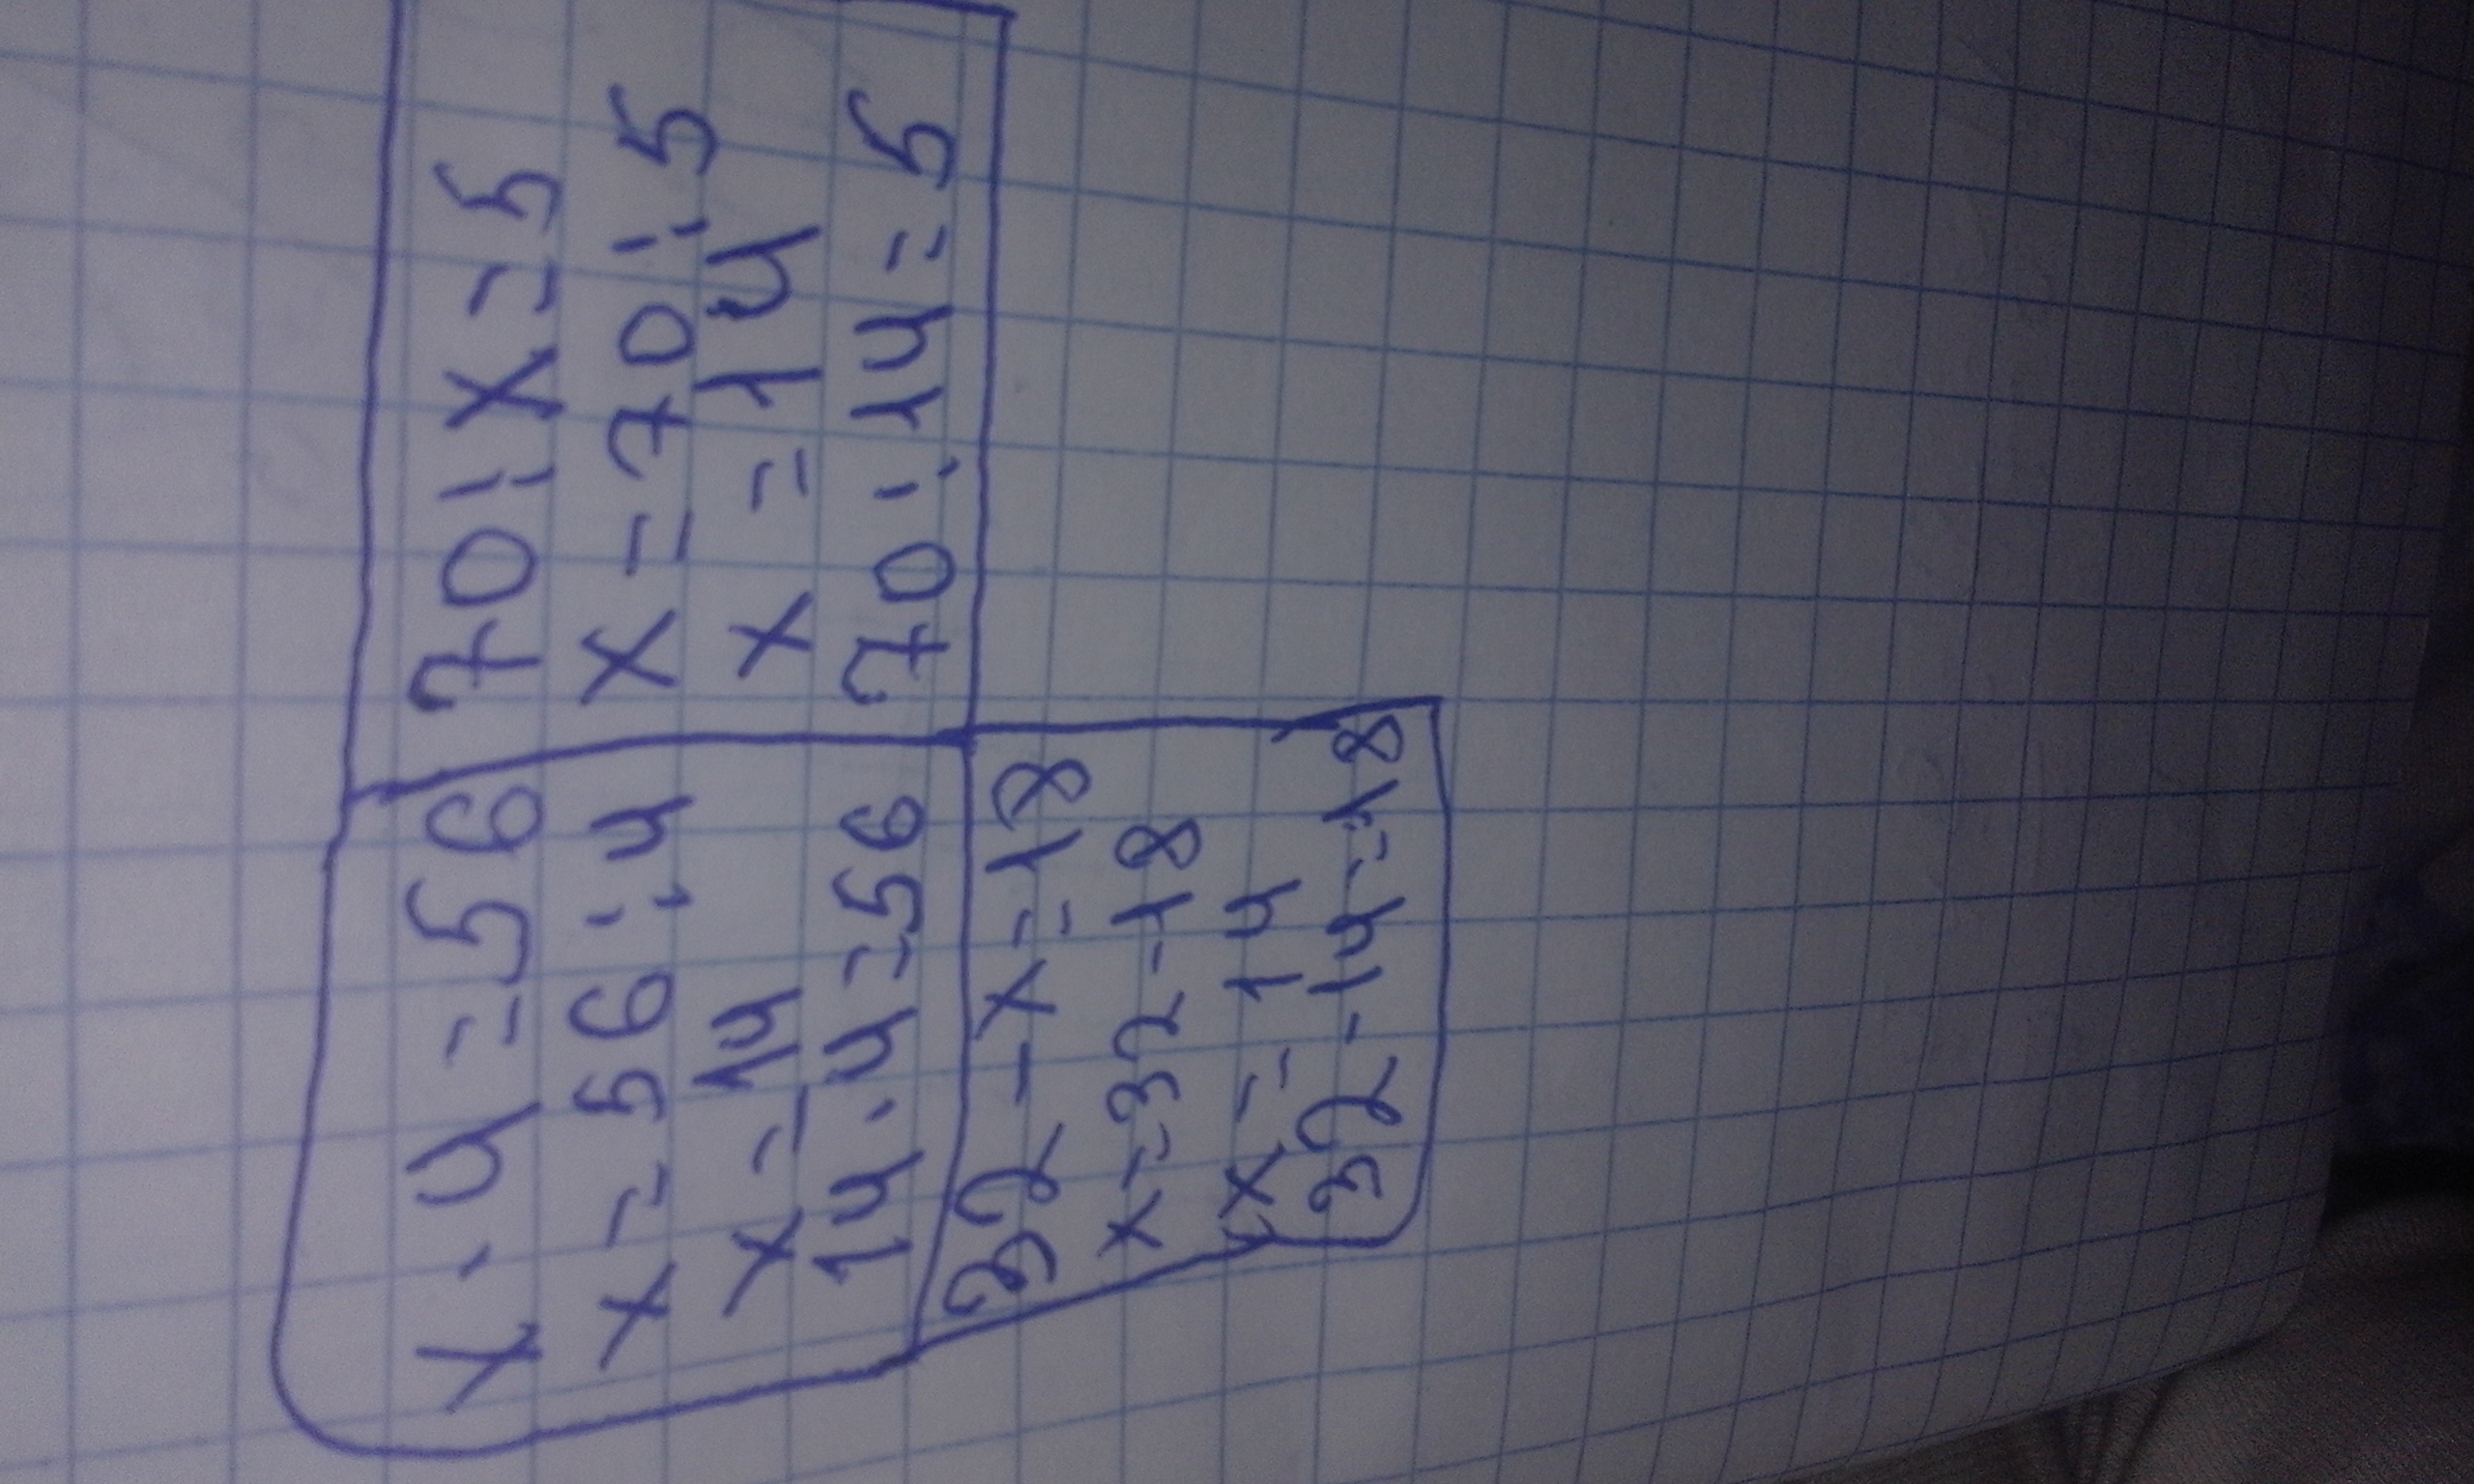 x · 4 = 56
x = 56 : 4
x = 14
14 · 4 = 56
70 : x = 5
x = 70 : 5
x = 14
70 : 14 = 5
32 - x = 18
x = 32 - 18
x = 14
32 - 14 = 18